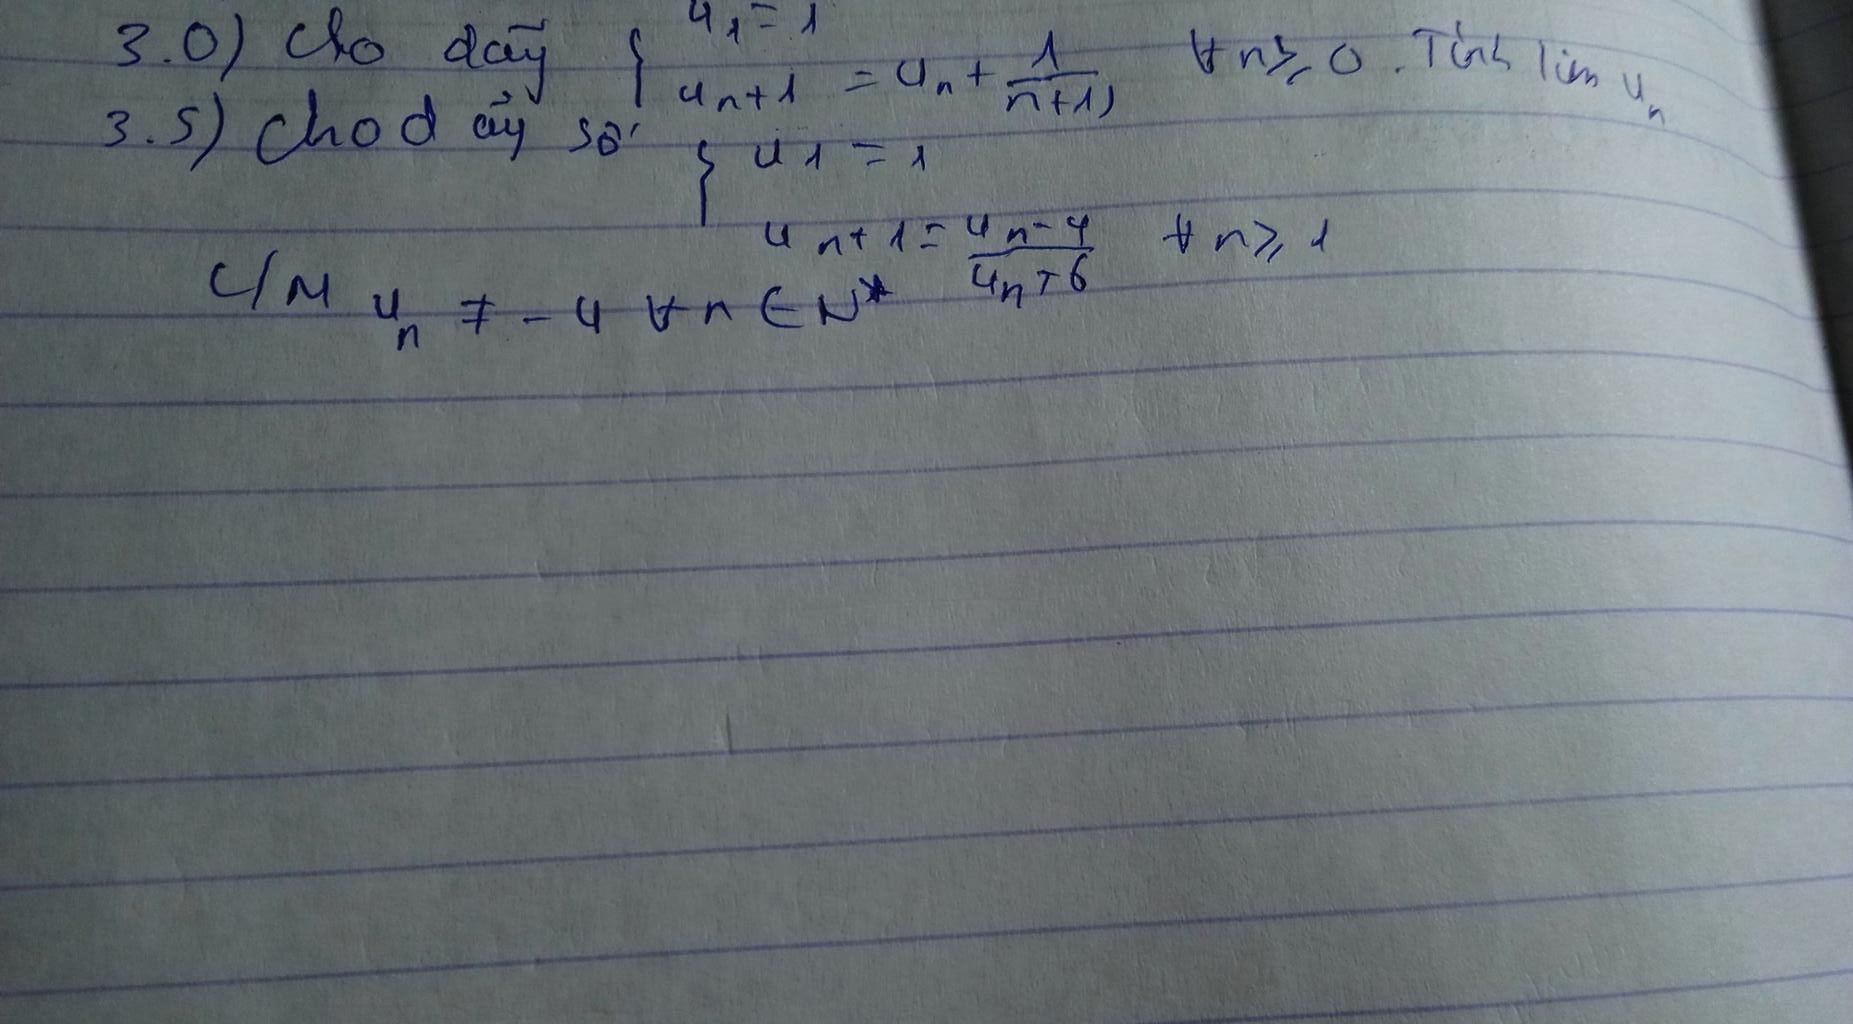 3.0) Cho dãy { u1 = 1
un+1 = un + 1/(n+1) ∀n≥0. Tính lim un
3.5) Cho dãy số { u1 = 1
un+1 = un-4/un+6 ∀n≥1
C/M un ≠ -4 ∀n∈N*